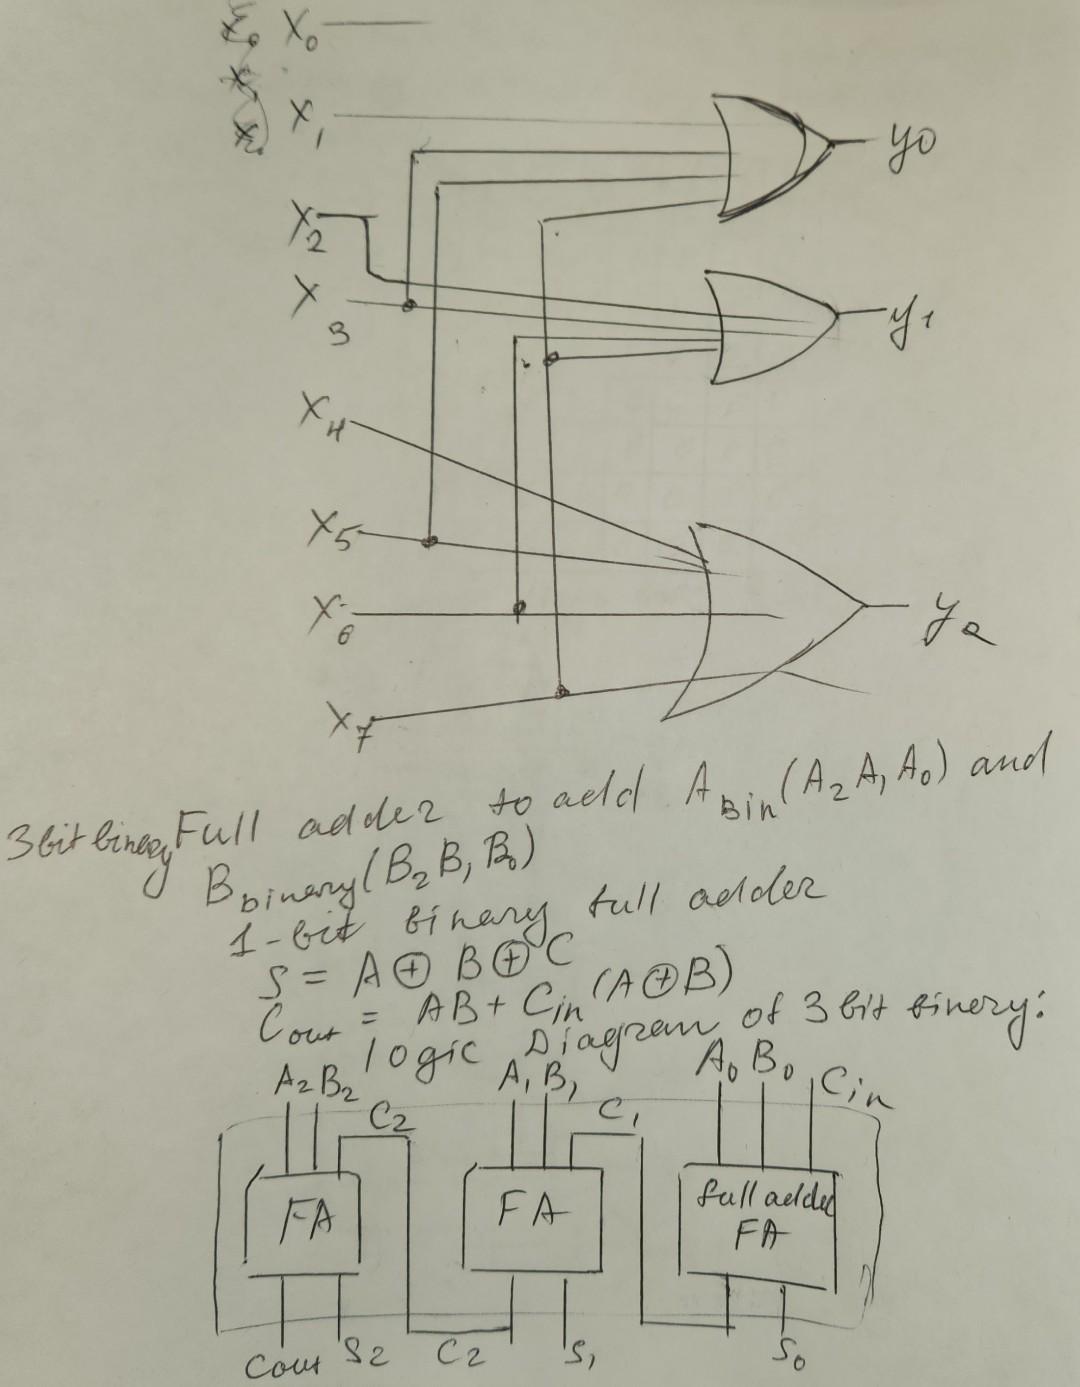 X₀
X₁
y0
X₂
X₃
y₁
X₄
X₅
X₆
y₂
X₇
3bit binary Full adder to add A Bin (A₂A₁A₀) and
B binary (B₂B₁B₀)
1-bit binary full adder
S = A ⊕ B ⊕ C
Cout = AB + Cin (A ⊕ B)
logic Diagram of 3 bit binery:
A₂ B₂ C₂ A₁ B₁ C₁ A₀ B₀ Cin
FA FA full adder
FA
Cout S₂ C₂ S₁ S₀